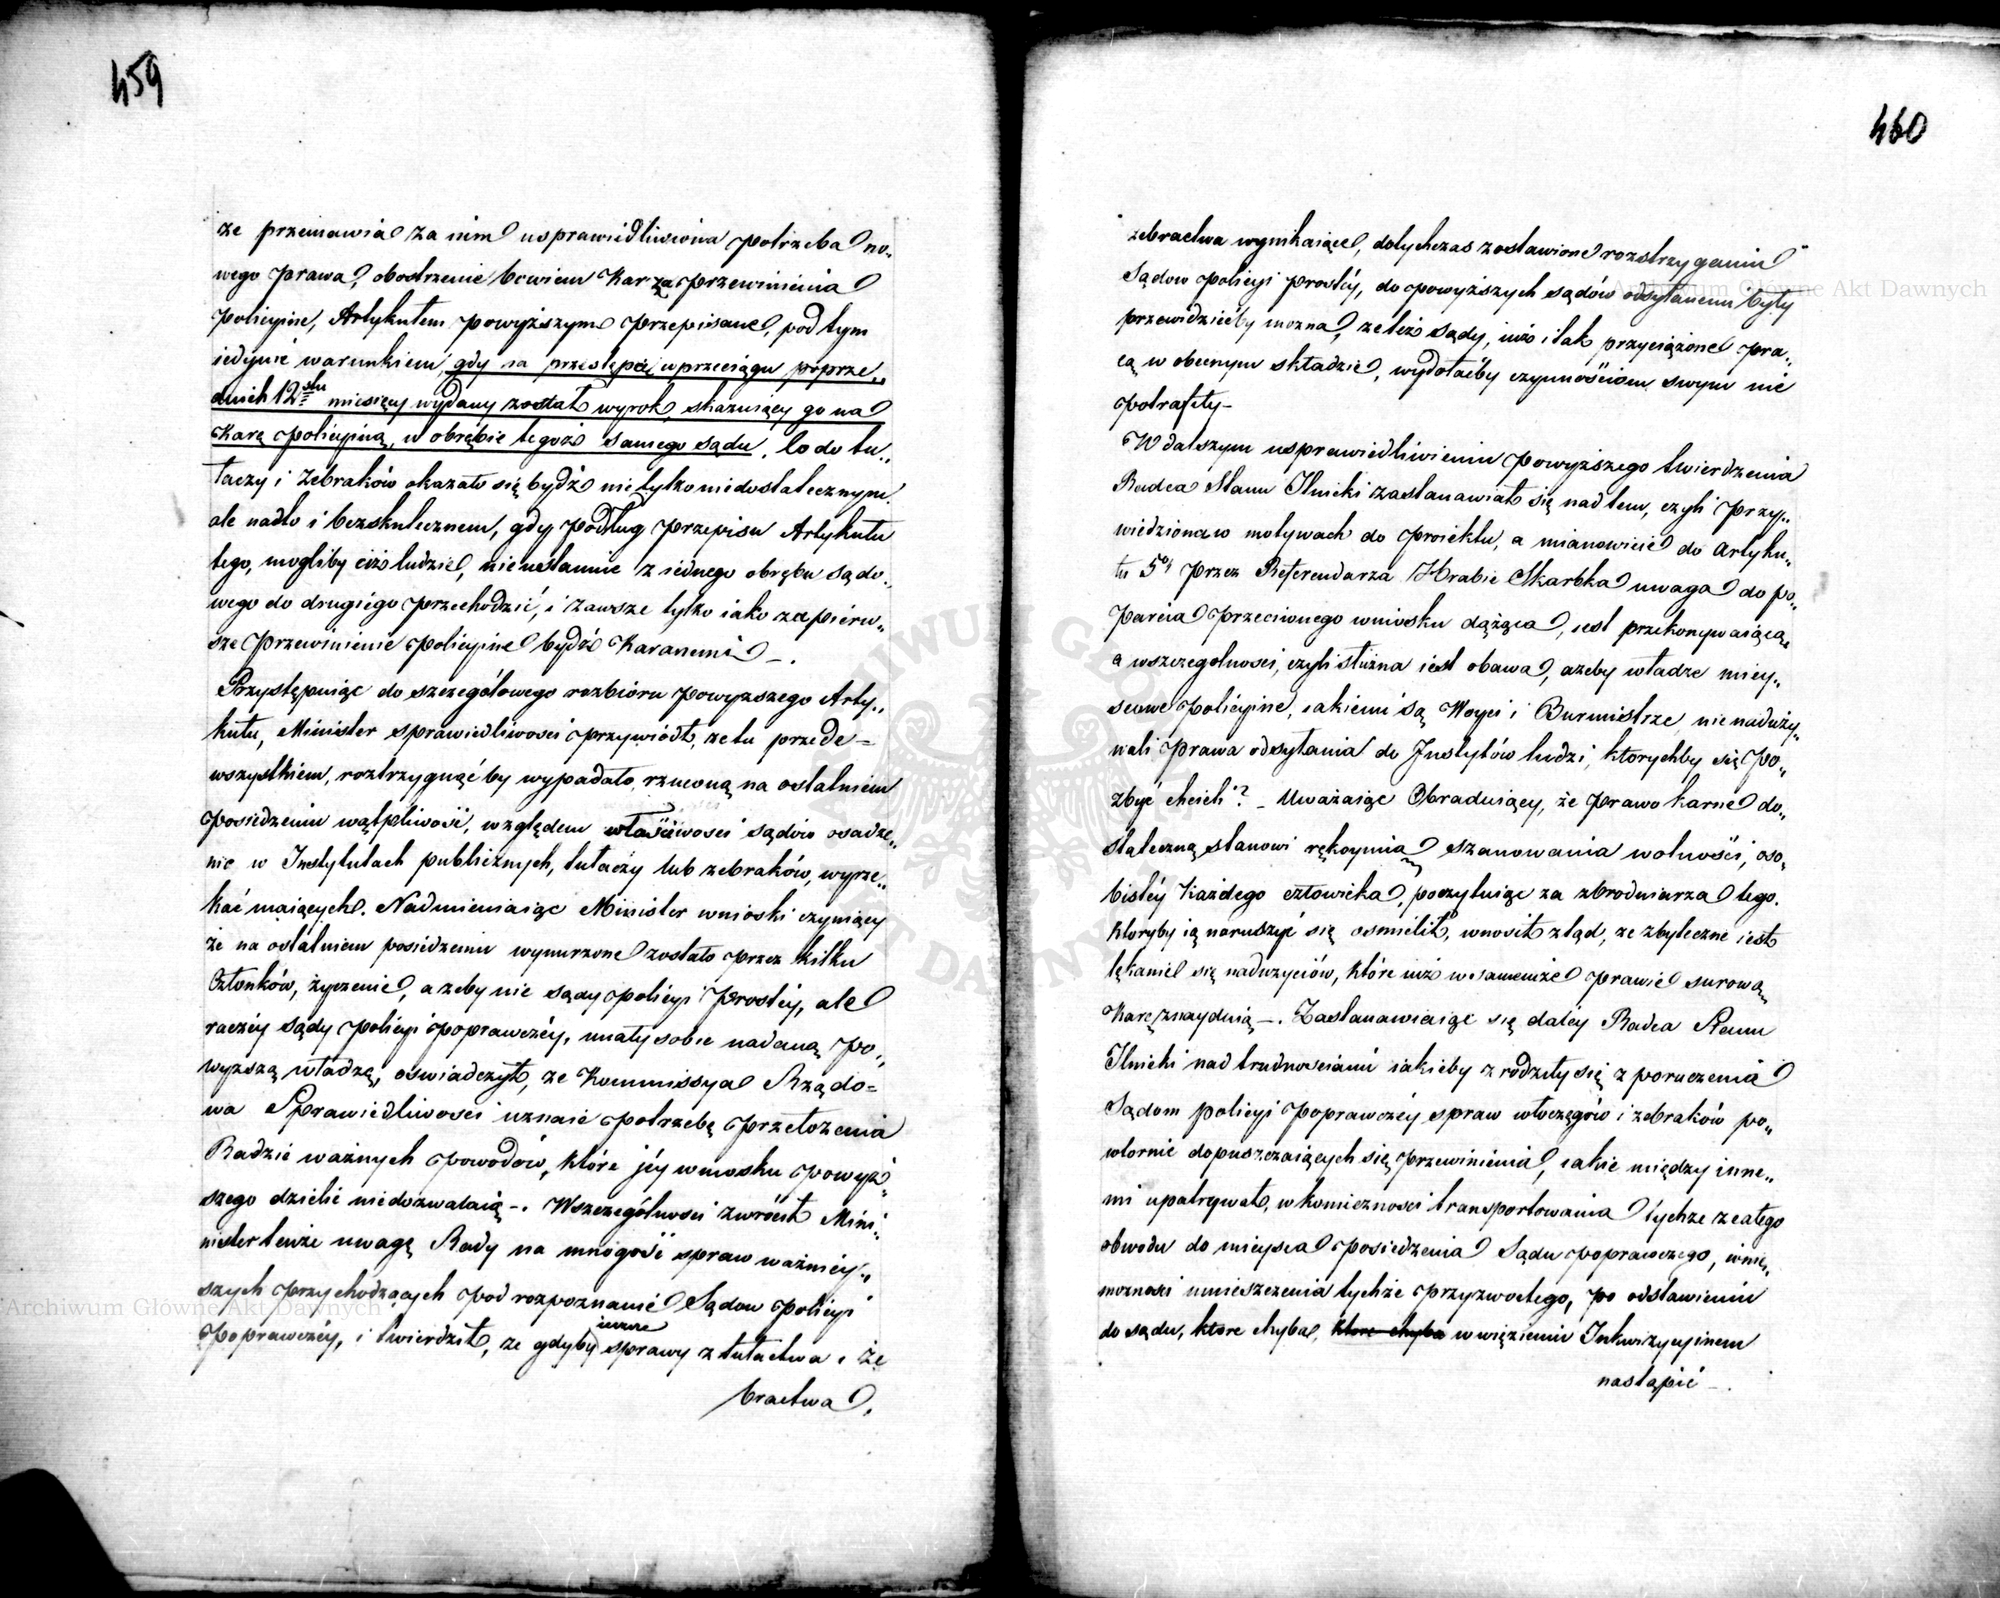 459
że przemawia za nim usprawiedliwiona potrzeba no„
wego prawa, obostrzenie bowiem Kar za przewinienia
policyjne, Artykułem powyższym przepisane, pod tym
iedynie warunkiem, gdy na przestępcę w przeciągu poprze„
dnich 12stu miesięcy wydany został wyrok, skazuiący go na
Karę policyiną, w obrębie tegoż samego sądu, co do tu„
łaczy i Żebraków okazało się bydź nie tylko niedostatecznym
ale nadto i bezskutecznem, gdy podług przepisu Artykułu
tego, mogliby ciż ludzie, nieustannie z iednego obrębu sądo„
wego do drugiego przechodzić, i zawsze tylko iako za pierw„
sze przewinienie policyine bydź Karanemi –.
Przystępuiąc do szczegółowego rozbioru powyższego Arty„
kułu, Minister sprawiedliwości przywiódł, że tu przede=
wszystkiem, roztrzygnąć by wypadało, rzuconą na ostatniem
posiedzeniu wątpliwość, względem właściwości sądów osadze„
nie w Instytutach publicznych, tułaczy lub żebraków, wyrze„
kać maiących. Nadmieniaiąc Minister wnioski czyniący
że na ostatniem posiedzeniu wynurzone zostało przez kilku
Członków, życzenie, ażeby nie sądy policyi Prostéy, ale
raczéy sądy policyi poprawczéy, miały sobie nadaną po„
wyższą władzę, oświadczył, że Kommissya Rządo=
wa Sprawiedliwości uznaie potrzebę przełożenia
Radzie ważnych powodów, które jéy wniosku powyż„
szego dzielić niedozwalaią –. W szczególności zwrócił Mini„
nister tenże uwagę Rady na mnogość spraw ważniéy„
szych przychodzących pod rozpoznanie Sądow policyi
poprawczéy, i twierdził, że gdyby ieszcze sprawy z tułactwa i że
bractwa,
460
żebractwa wynikaiące, dotychczas zostawione rozstrzyganiu
Sądow policyi prostéy, do powyższych sądów odsyłanemi były
przewidziećby można, że też sądy, iuż i tak przyciążone pra„
cą w obecnym składzie, wydołaćby czynnościom swym nie
potrafiły –
W dalszym usprawiedliwieniu powyższego twierdzenia
Radca Stanu Ilnicki zastanawiał się nad tem, czyli przy„
wiedziona w motywach do proiektu, a mianowicie do artyku„
łu 5o przez Referendarza Hrabie Skarbka uwaga do po„
parcia przeciwnego wniosku dążąca, iest przekonywaiącą,
a w szczegolności, czyli słuszna iest obawa, ażeby władze miey„
scowe policyine, iakiemi są Woyci i Burmistrze, nie naduży„
wali prawa odsyłania do Instytów ludzi, ktorychby się po„
zbyć chcieli? – Uważaiąc Obraduiący, że prawo karne do„
stateczną stanowi rękoymią szanowania wolności, oso„
bistéy Każdego człowieka, poczytuiąc za zbrodniarza tego.
któryby ią naruszyć się ośmielił, wnosił ztąd, że zbyteczne iest
lękanie się nadużyciów, które iuż w samemże prawie surową
Karę znayduią –. Zastanawiaiąc się daléy Radca Stanu
Ilnicki nad trudnościami iakieby zrodziły się z poruczenia
Sądom policyi poprawczéy spraw włoczęgów i żebraków po„
wtornie dopuszczaiących się przewinienia, iakie między inne„
mi upatrywał, w konieczności transportowania tychże z całego
obwodu do mieysca posiedzenia Sądu poprawczego, w nie„
możności umieszczenia tychże przyzwoitego, po odstawieniu
do sądu, ktore chyba, ktore chyba w więzieniu Inkwizycyinem
nastąpić –.
Archiwum Główne Akt Dawnych
Archiwum Główne Akt Dawnych